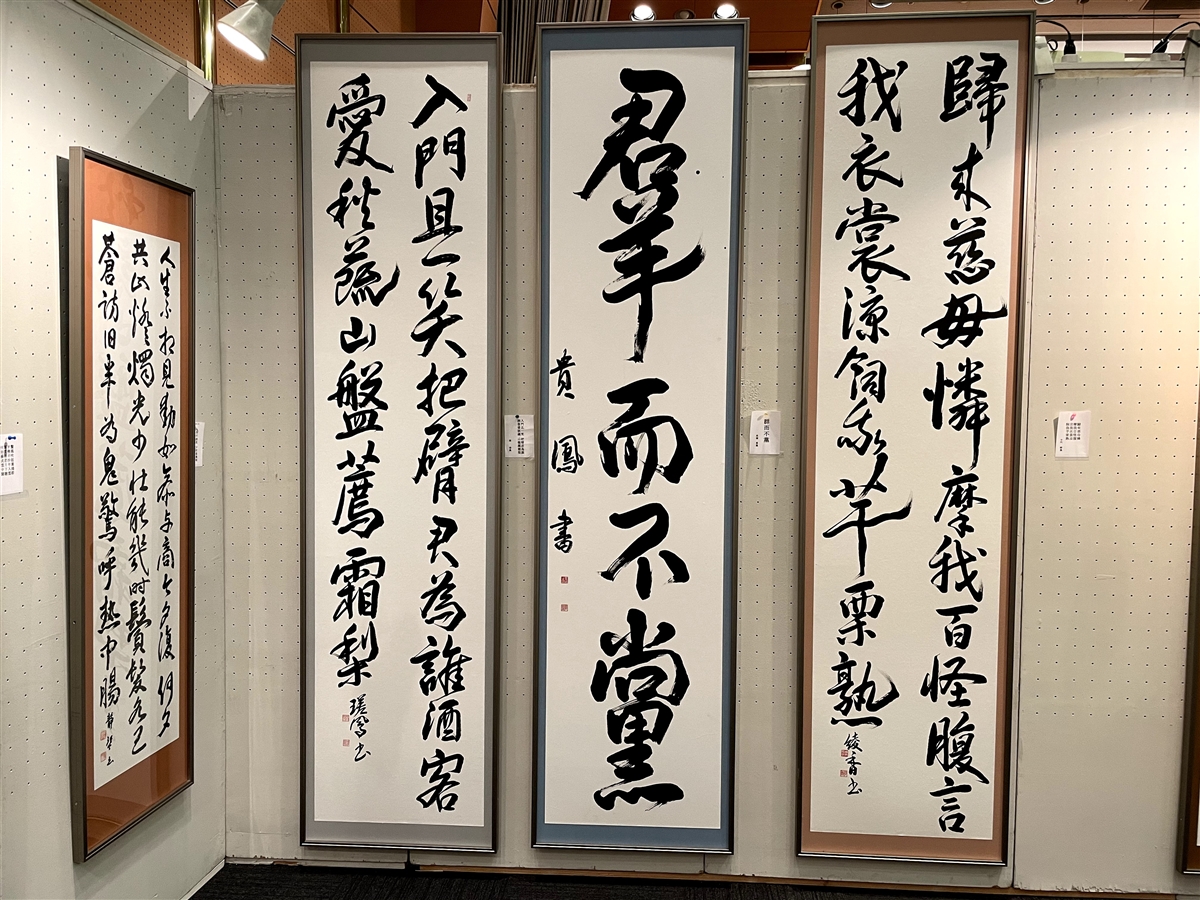 歸来慈母憐摩我百怪腹言
我衣裳涼飼我芋栗熟
綾香書
羣而不黨
貴鳳書
群而不黨
入門且一笑把臂君為誰酒客
愛秋蔬山盤薦霜梨
鳳書
人生不相見動如参与商今夕復何夕
共此燈燭光少壮能幾時鬢髪各已
蒼訪旧半為鬼驚呼熱中腸